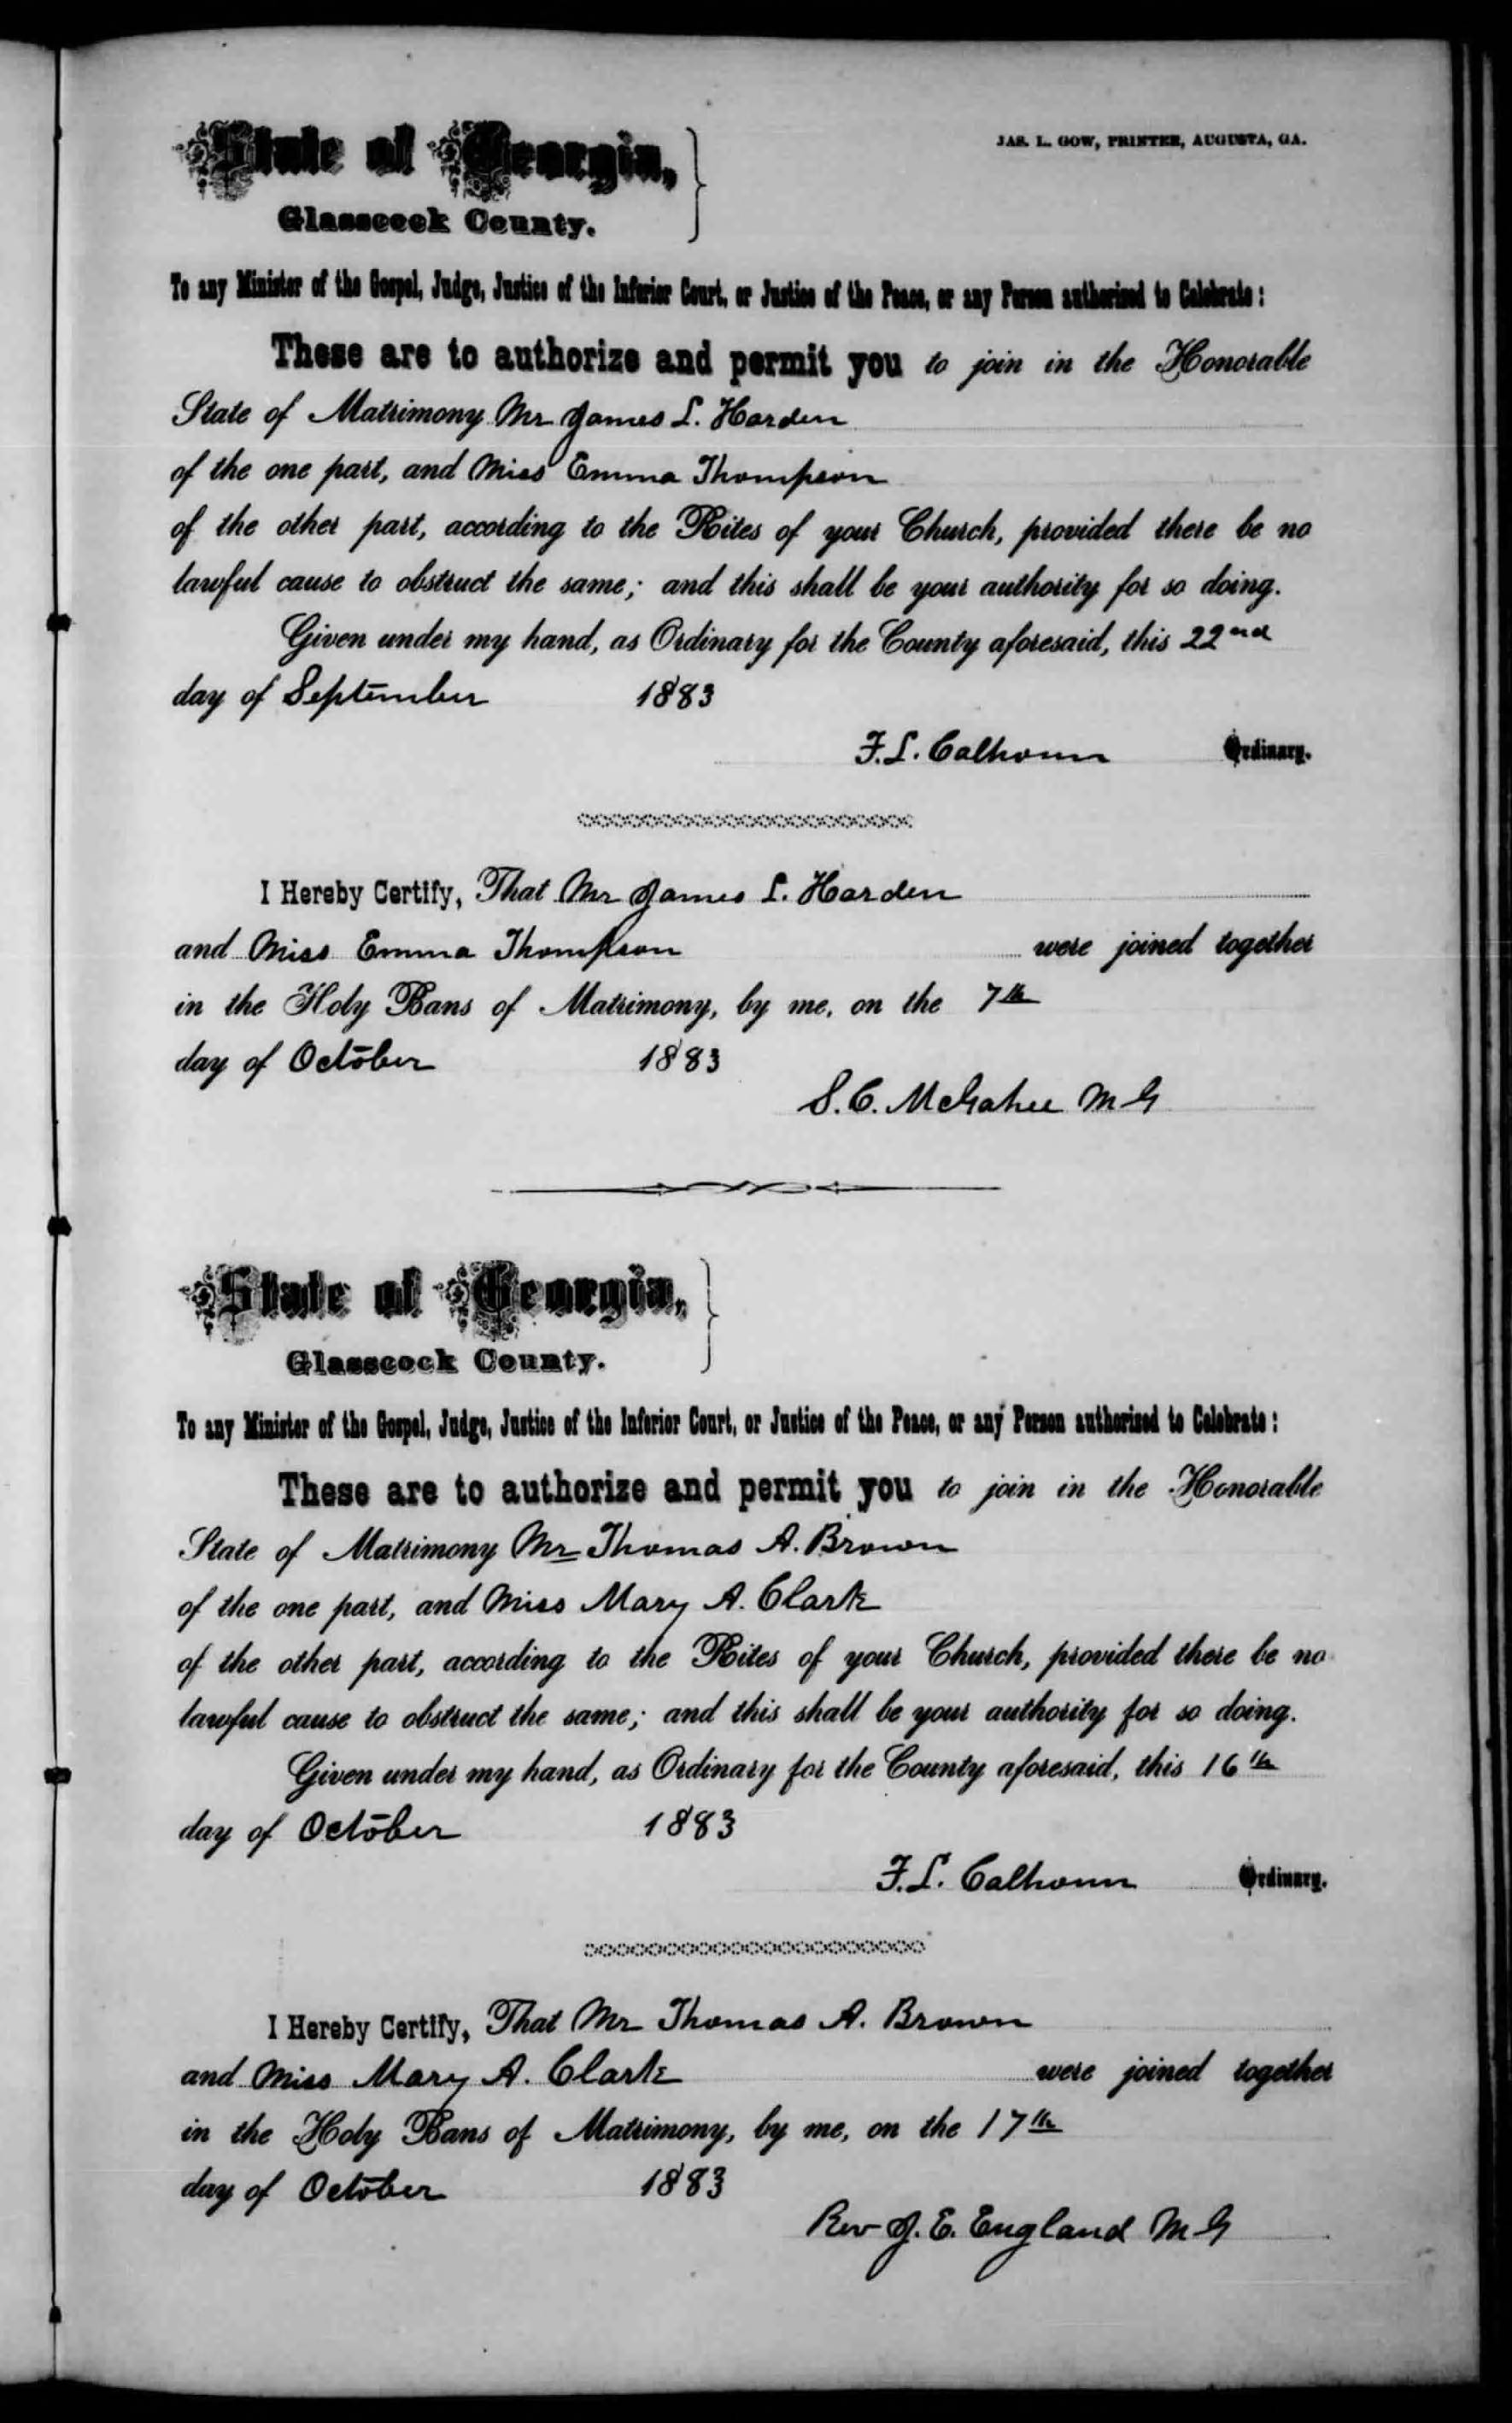 State of Georgia,
JAS. L. GOW, PRINTER, AUGUSTA, GA.
Glasscock County.
To any Minister of the Gospel, Judge, Justice of the Inferior Court, or Justice of the Peace, or any Person authorized to Celebrate:
These are to authorize and permit you to join in the Honorable
State of Matrimony Mr James L. Harden
of the one part, and Miss Emma Thompson
of the other part, according to the Rites of your Church, provided there be no
lawful cause to obstruct the same; and this shall be your authority for so doing.
Given under my hand, as Ordinary for the County aforesaid, this 22nd
day of September 1883
F. L. Calhoun Ordinary.
I Hereby Certify, That Mr James L. Harden
and Miss Emma Thompson were joined together
in the Holy Bans of Matrimony, by me, on the 7th
day of October 1883
S. C. McGahee M G
State of Georgia,
Glasscock County.
To any Minister of the Gospel, Judge, Justice of the Inferior Court, or Justice of the Peace, or any Person authorized to Celebrate:
These are to authorize and permit you to join in the Honorable
State of Matrimony Mr Thomas A. Brown
of the one part, and Miss Mary A. Clark
of the other part, according to the Rites of your Church, provided there be no
lawful cause to obstruct the same; and this shall be your authority for so doing.
Given under my hand, as Ordinary for the County aforesaid, this 16th
day of October 1883
F. L. Calhoun Ordinary.
I Hereby Certify, That Mr Thomas A. Brown
and Miss Mary A. Clark were joined together
in the Holy Bans of Matrimony, by me, on the 17th
day of October 1883
Rev J. E. England M G